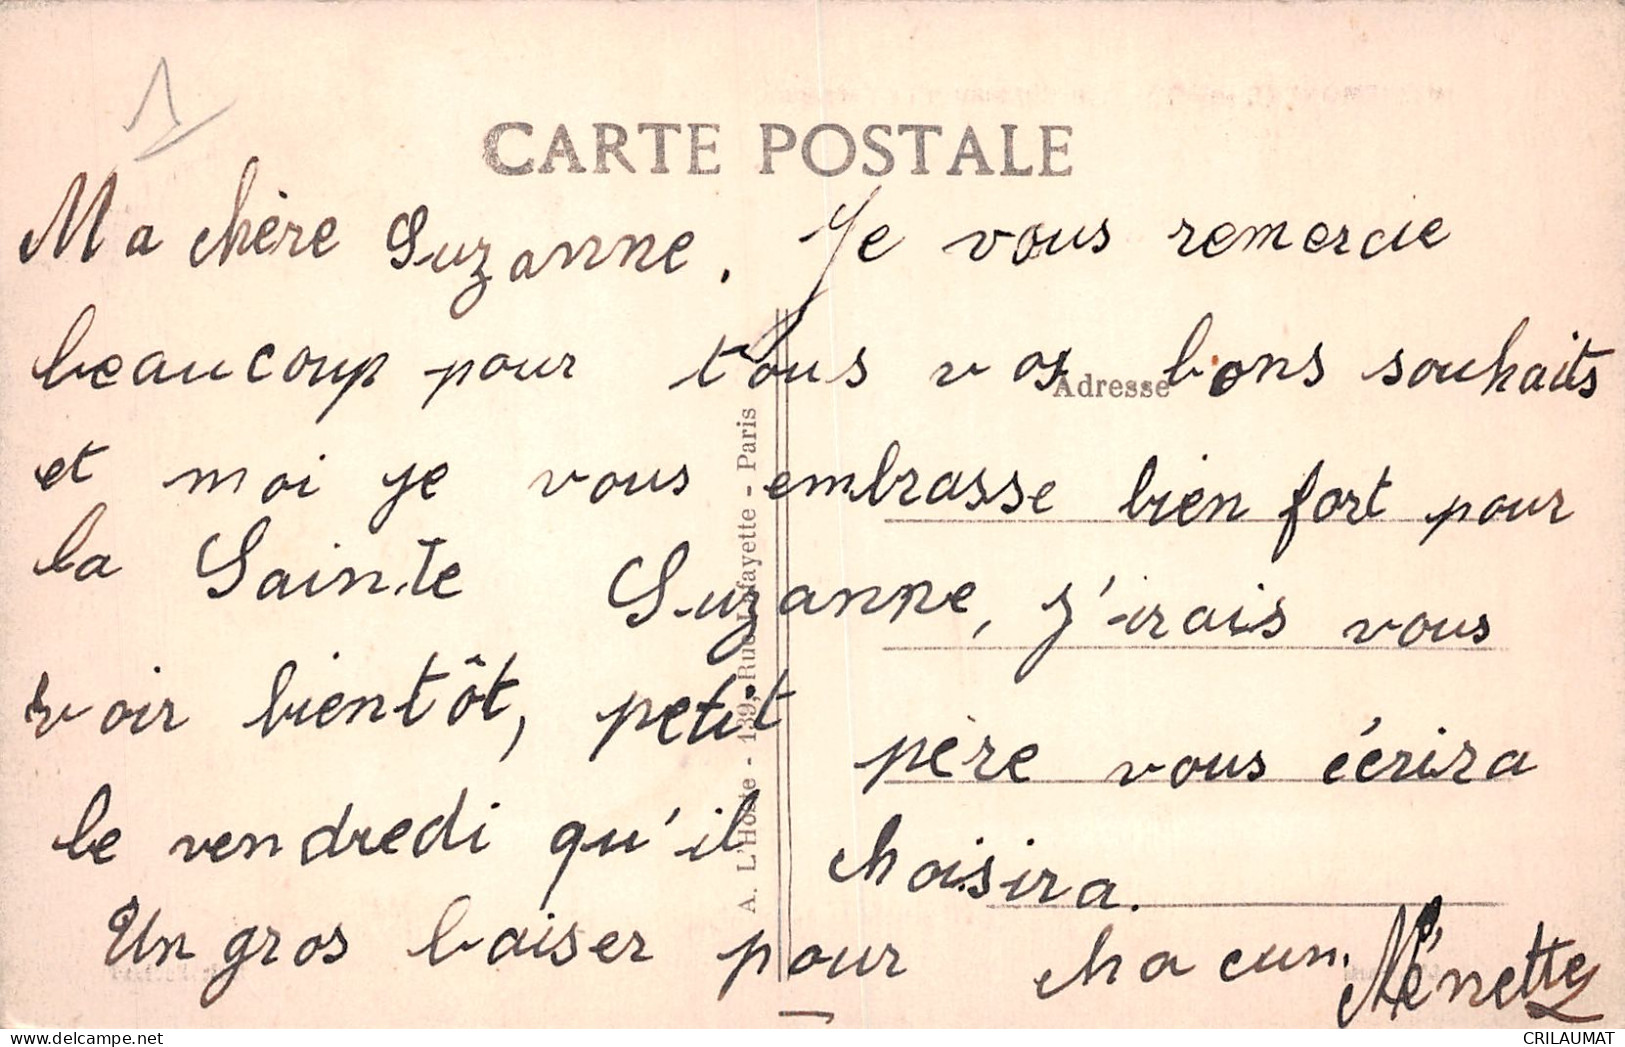 1
CARTE POSTALE
Ma chère Suzanne. Je vous remercie
beaucoup pour tous vos bons souhaits
Adresse
et moi je vous embrasse bien fort pour
la Sainte Suzanne, j'irais vous
voir bientôt, petit père vous écrira
le vendredi qu'il choisira.
Un gros baiser pour chacun. Nénette
A. L'Hoste - 139, Rue Lafayette - Paris
delcampe.net
CRILAUMAT